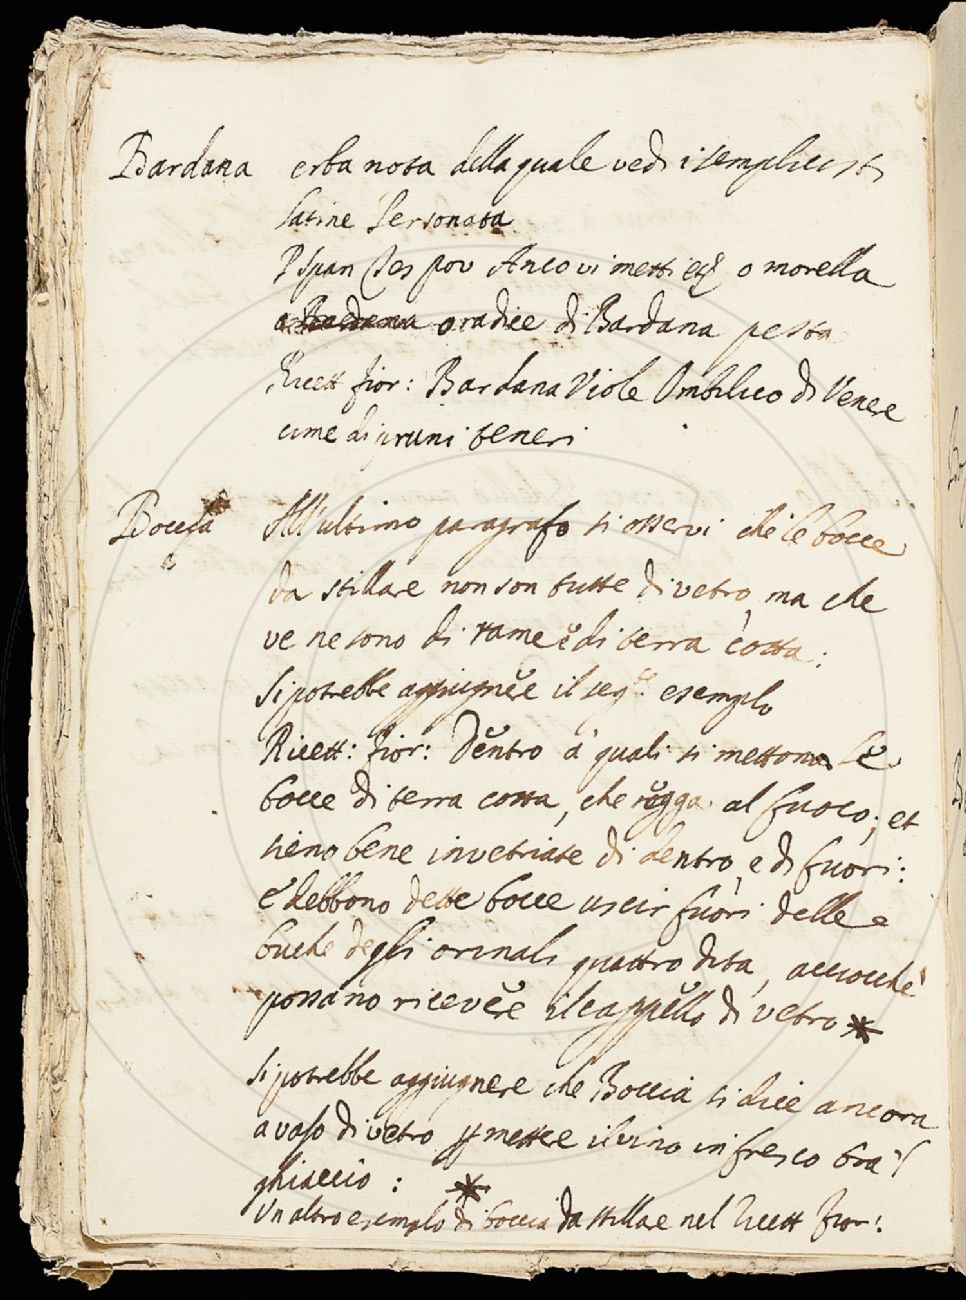 Bardana erba nota della quale vedi i semplicisti
latine Personata
P Span Tes pov Anco vi metti etc o morella
o radice di Bardana pesta
Ricett fior: Bardana Viole Ombilico di Venere
cime di pruni teneri
Boccia All'ultimo paragrafo si osservi che le bocce
da stillare non son tutte di vetro, ma che
ve ne sono di rame e di terra cotta:
Si potrebbe aggiugnere il segte. esempio
Ricett: fior: Dentro a' quali si mettono le
bocce di terra cotta, che regga al fuoco; et
sieno bene invetriate di dentro, e di fuori:
e debbono dette bocce uscir fuori delle
buche degli orinali quattro dita, acciocchè
possano ricevere il cappello di vetro *
Si potrebbe aggiugnere che Boccia si dice ancora
a vaso di vetro p mettere il vino in fresco tra 'l
ghiaccio: *
Un altro esemplo di boccia da stillare nel Ricett fior: